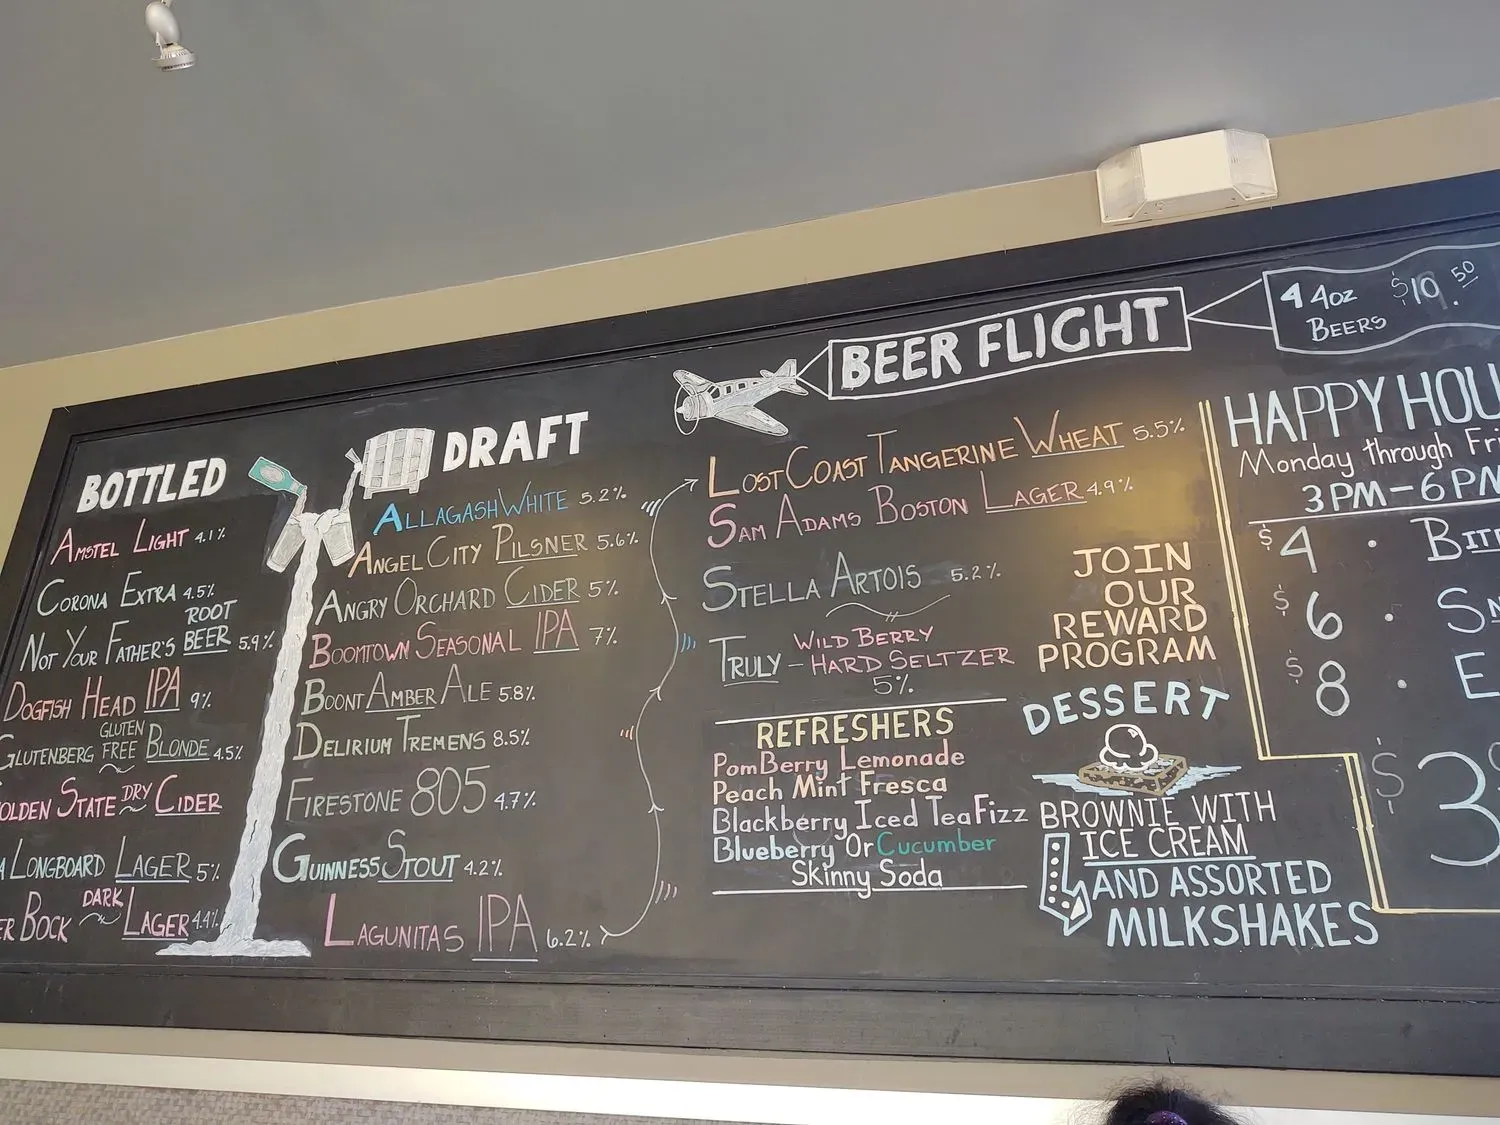 BOTTLED
AMSTEL LIGHT 4.1%
CORONA EXTRA 4.5%
NOT YOUR FATHER'S ROOT BEER 5.9%
DOGFISH HEAD IPA 9%
GLUTENBERG GLUTEN FREE BLONDE 4.5%
OLDEN STATE DRY CIDER
A LONGBOARD LAGER 5%
ER BOCK DARK LAGER 4.4%
DRAFT
ALLAGASH WHITE 5.2%
ANGEL CITY PILSNER 5.6%
ANGRY ORCHARD CIDER 5%
BOOMTOWN SEASONAL IPA 7%
BOONT AMBER ALE 5.8%
DELIRIUM TREMENS 8.5%
FIRESTONE 805 4.7%
GUINNESS STOUT 4.2%
LAGUNITAS IPA 6.2%
BEER FLIGHT
4 4oz $10.50
BEERS
LOST COAST TANGERINE WHEAT 5.5%
SAM ADAMS BOSTON LAGER 4.9%
STELLA ARTOIS 5.2%
TRULY - WILD BERRY
HARD SELTZER
5%
REFRESHERS
PomBerry Lemonade
Peach Mint Fresca
Blackberry Iced Tea Fizz
Blueberry Or Cucumber
Skinny Soda
JOIN
OUR
REWARD
PROGRAM
DESSERT
BROWNIE WITH
ICE CREAM
AND ASSORTED
MILKSHAKES
HAPPY HOU
Monday through Fri
3PM-6PM
$4 · BITE
$6 · SN
$8 · E
$3